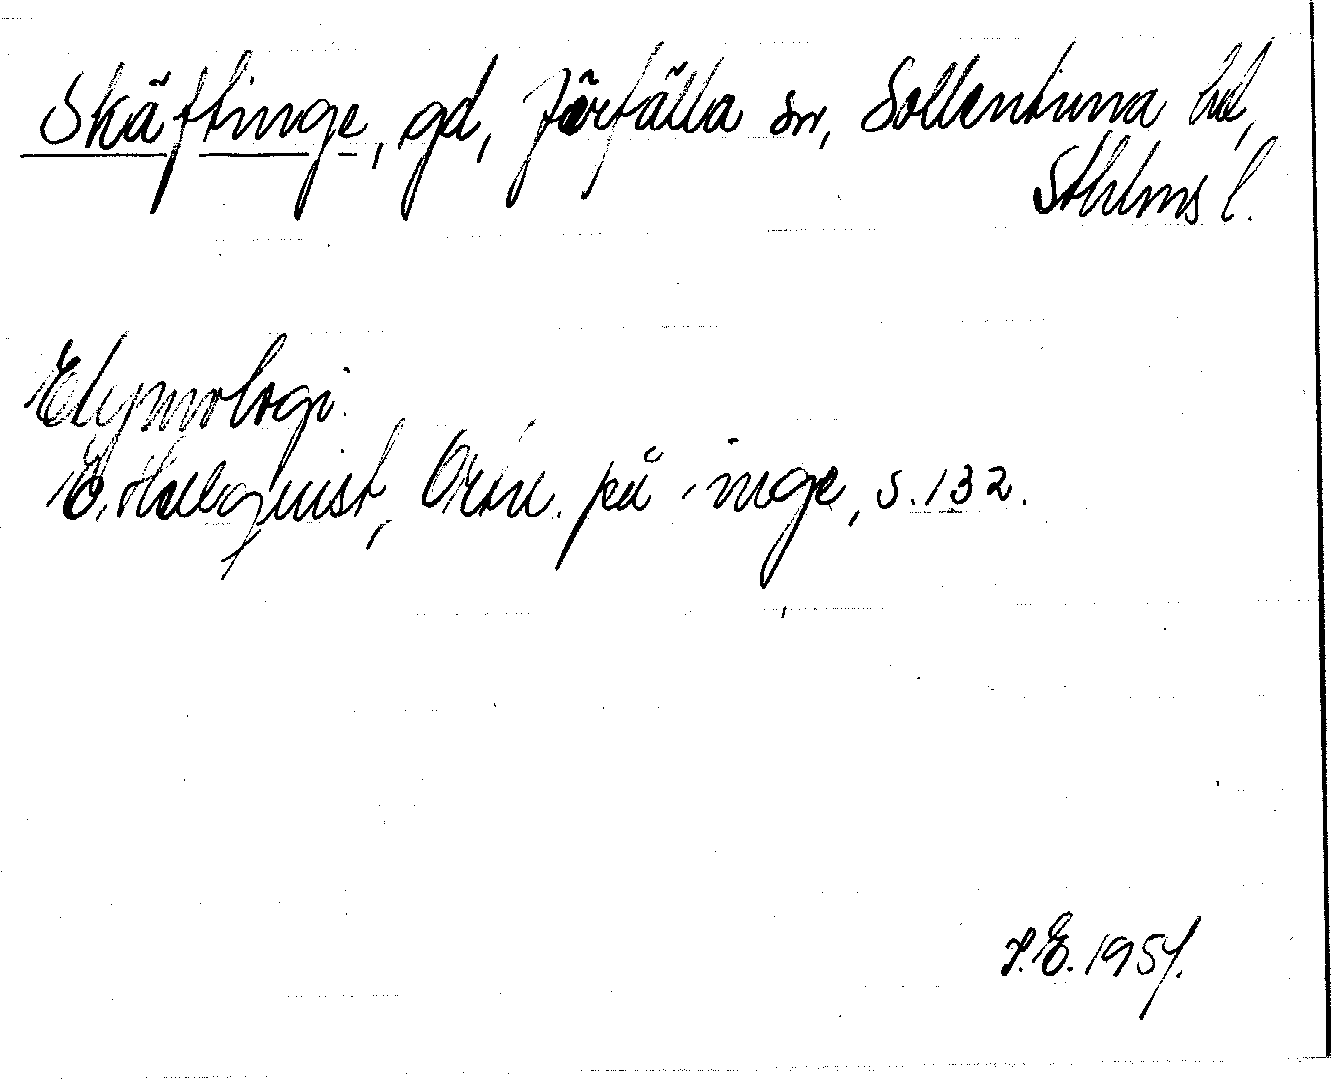 Skäftinge, gd, Järfälla sn, Sollentuna hd,
Sthlms l.
Etymologi.
E. Hellquist, Ortn. på -inge, s. 132.
1954.